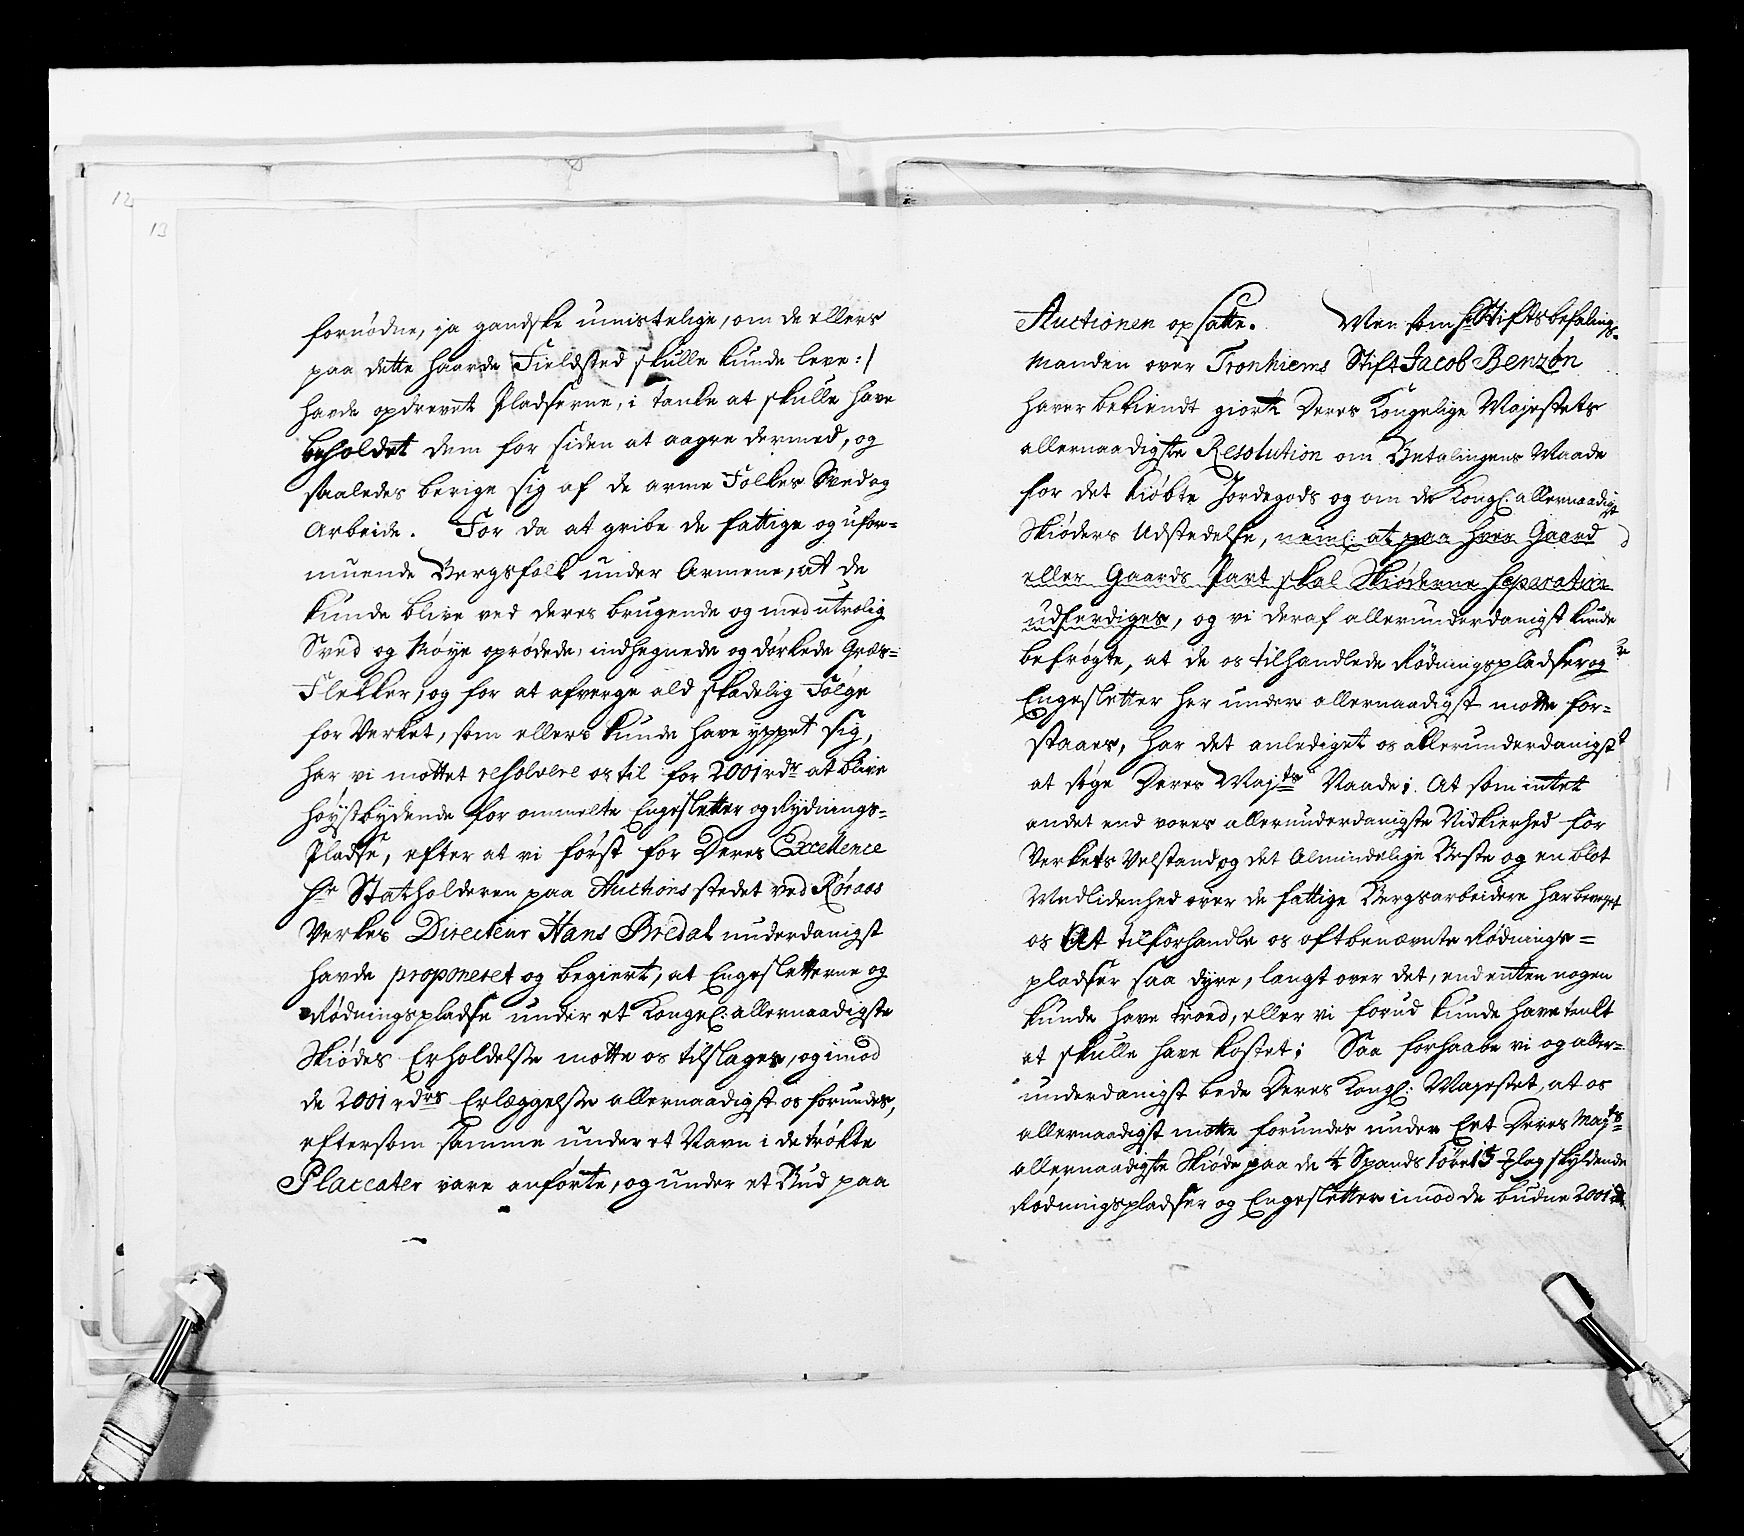 12
13
fornødne, ja gandske umistelige, om de ellers
paa dette haarde Fieldsted skulle kunde leve :/
havde opdrevet Pladserne, i tanke at skulle have
beholdet dem for siden at aagre dermed, og
saaledes berige sig af de arme Folkes Sved og
Arbeide. For da at gribe de fattige og ufor-
muende Bergsfolk under Armene, at de
kunde blive ved deres brugende og med utrolig
Sved og Møye oprødede, indhegnede og dørkede Græs-
Flekker, og for at afverge ald skadelig Følge
for Verket, som ellers kunde have yppet sig,
har vi mottet resolvere os til for 2001 rdr at blive
høystbydende for ommelte Engesletter og Rydnings-
Pladse, efter at vi først for Deres Excellence
Hr Statholderen paa Auctions stedet ved Røraas
Verkes Directeur Hans Bredal underdanigst
havde proponeret og begiert, at Engesletterne og
Rødningspladse under et Kongel: allernaadigste
Skiødes Erholdelse motte os tilslages, og imod
de 2001 rdrs Erlæggelse allernaadigst os forundes,
eftersom samme under et Navn i de trøkte
Placcater vare anførte, og under et Bud paa
Auctionen opsatte. Men som Hr Stiftsbefalings-
manden over Tronhiems Stift Jacob Benzøn
haver bekiendt giort Deres Kongelige Majestets
allernaadigste Resolution om Betalingens Maade
for det kiøbte Jordegods og om de Kongl: allernaadigst
Skiøders Udstedelse, neml: at paa hver Gaard
eller Gaards Part skal Skiøderne separatim
udferdiges, og vi deraf allerunderdanigst kunde
befrøgte, at de os tilhandlede Rødningspladser og
Engesletter her under allernaadigst motte for-
staaes, har det anlediget os allerunderdanigst
at søge Deres Majts Naade; At som intet
andet end vores allerunderdanigste Nidkierhed for
Verkets Velstand og det Almindelige Beste og en blot
Medlidenhed over de fattige Bergsarbeidere har beveget
os at tilforhandle os oftbenævnte Rødnings-
pladser saa dyre, langt over det, end enten nogen
kunde have troed, eller vi forud kunde have tenkt
at skulle have kostet; Saa forhaabe vi og aller-
underdanigst bede Deres Kongl: Majestet, at os
allernaadigst motte forundes under Eet Deres Majts
allernaadigste Skiøde paa de 4 Spands skyldende
Rødningspladser og Engesletter imod de budne 2001 rdr